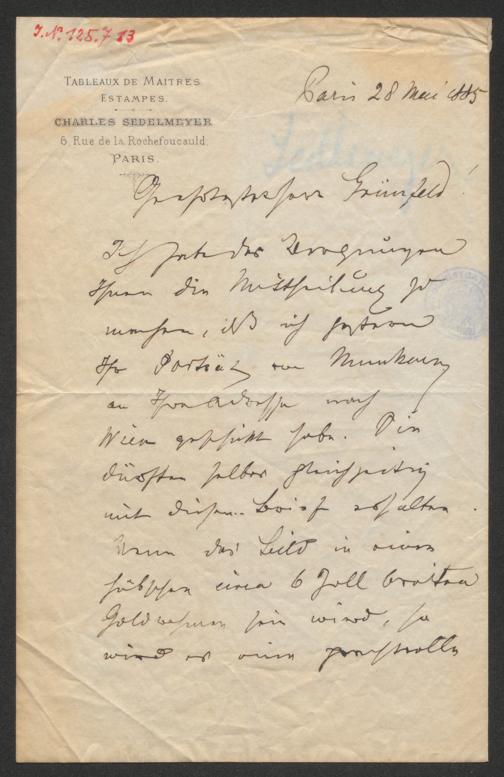 J.N. 125.713
TABLEAUX DE MAITRES
ESTAMPES.
CHARLES SEDELMEYER
6. Rue de la Rochefoucauld.
PARIS.
Paris 28 Mai 1885
Sedlmeyer
Geehrtester Herr Grünfeld!
Ich habe das Vergnügen
Ihnen die Mittheilung zu
machen, daß ich gestern
Ihr Porträt von Munkacsy
an Ihre Adresse nach
Wien geschickt habe. Sie
dürften selbes gleichzeitig
mit diesem Brief erhalten.
Wenn das Bild in einem
hübschen circa 6 Zoll breiten
Goldrahmen sein wird, so
wird es einen prachtvollen